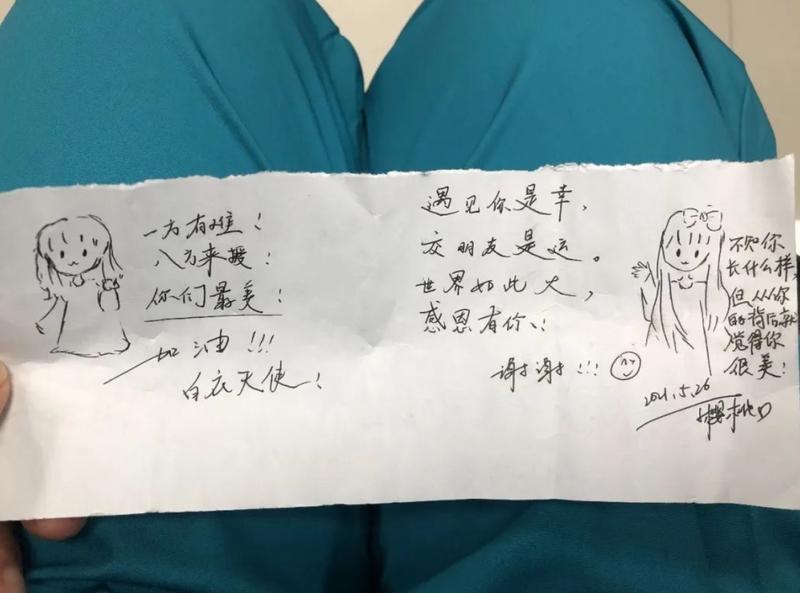 一方有难！
八方来援！
你们最美！
加油！！！
白衣天使！
遇见你是幸，
交朋友是运。
世界如此大，
感恩有你！
谢谢！！！
不知你
长什么样，
但从你
的背后就
觉得你
很美！
2021.5.26
樱桃